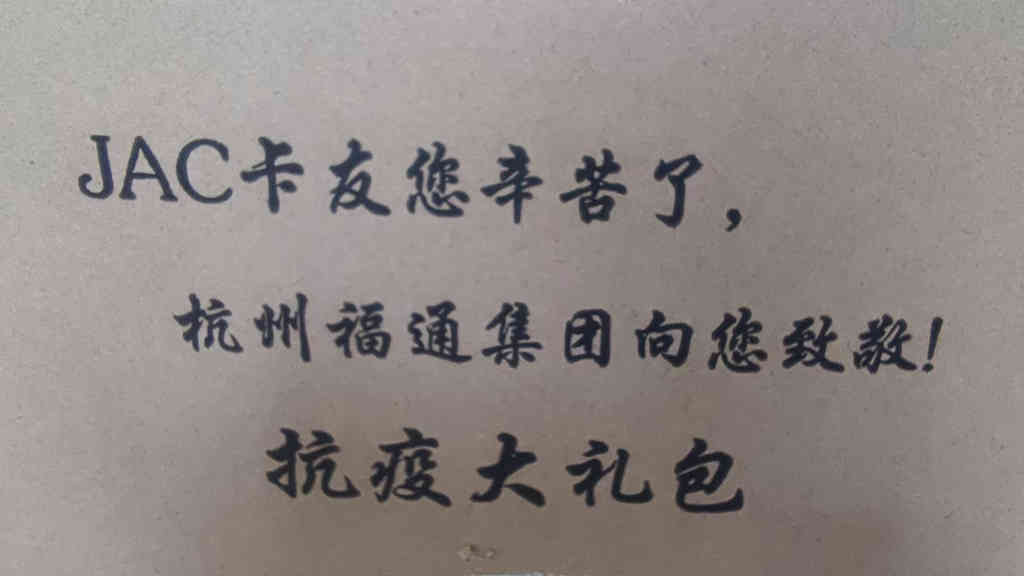 JAC卡友您辛苦了,
杭州福通集团向您致敬!
抗疫大礼包